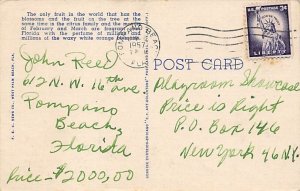 The only fruit in the world that has the
blossoms and the fruit on the tree at the
same time is the citrus family and the months
of February and March are fragrant in
Florida with the perfume of millions and
millions of the waxy white orange blossoms.
BEACH
1957
FLA
U.S. POSTAGE 3¢
LIBERTY
POST CARD
John Reed
612 N.W. 16th ave.
Pompano
Beach,
Florida
Price - $2000,00
Playroom Showcase
Price is Right
P.O. Box 146
New York 46 N.Y.